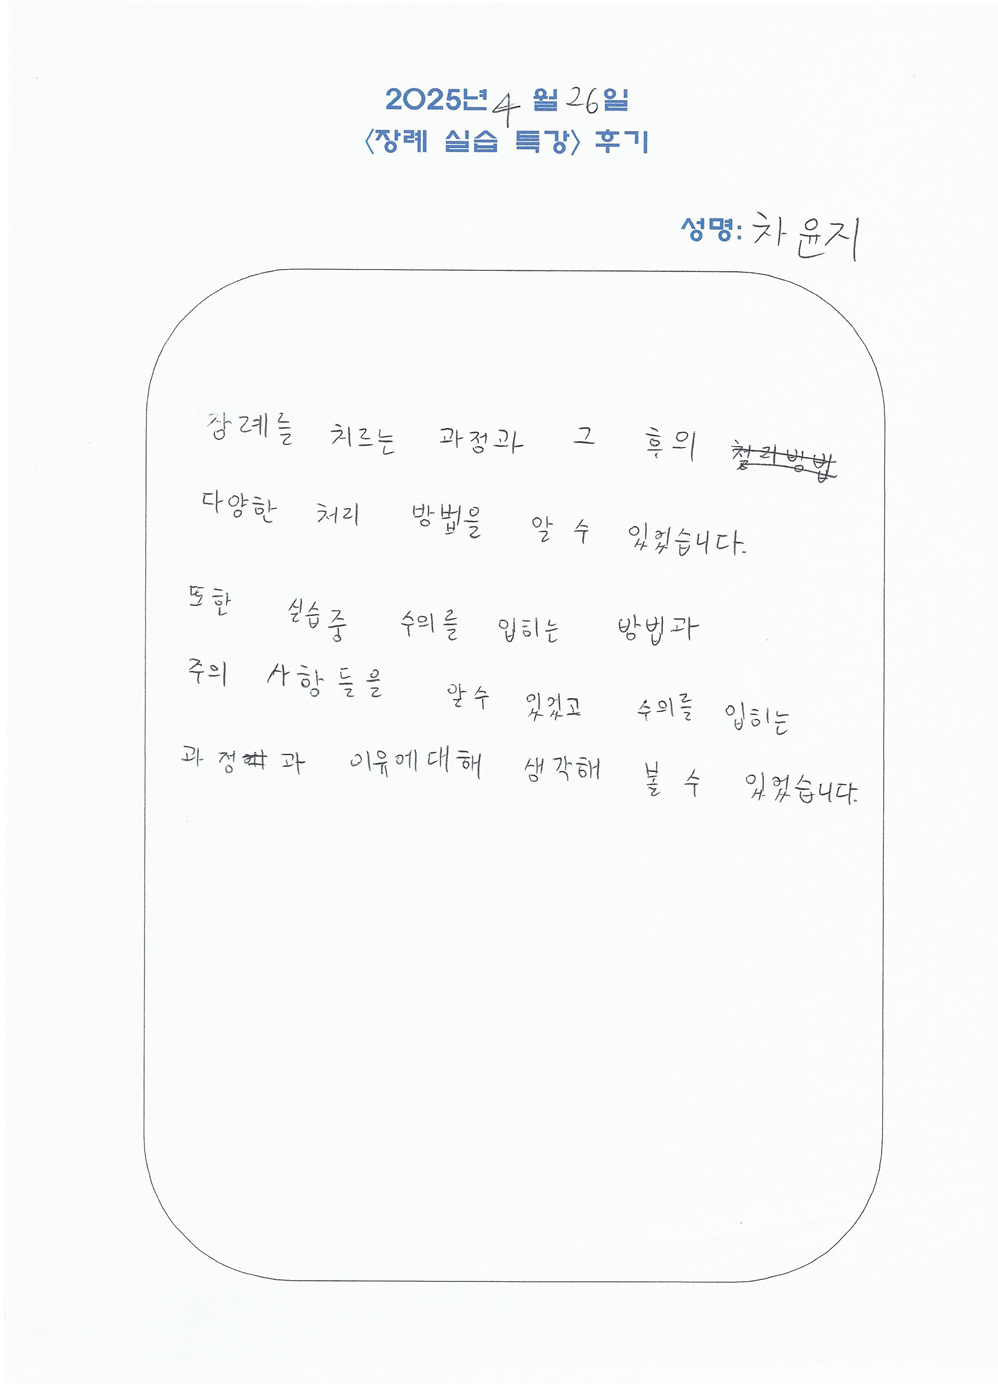 2025년 4월 26일
<장례 실습 특강> 후기
성명: 차윤지
장례를 치르는 과정과 그 후의
다양한 처리 방법을 알 수 있었습니다.
또한 실습중 수의를 입히는 방법과
주의 사항들을 알수 있었고 수의를 입히는
과정과 이유에대해 생각해 볼 수 있었습니다.